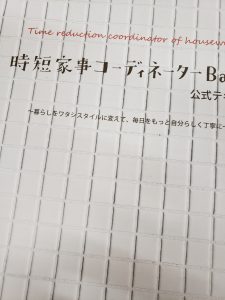 Time reduction coordinator of housew
時短家事コーディネーターBa
公式テキ
～暮らしをワタシスタイルに変えて、毎日をもっと自分らしく丁寧に～